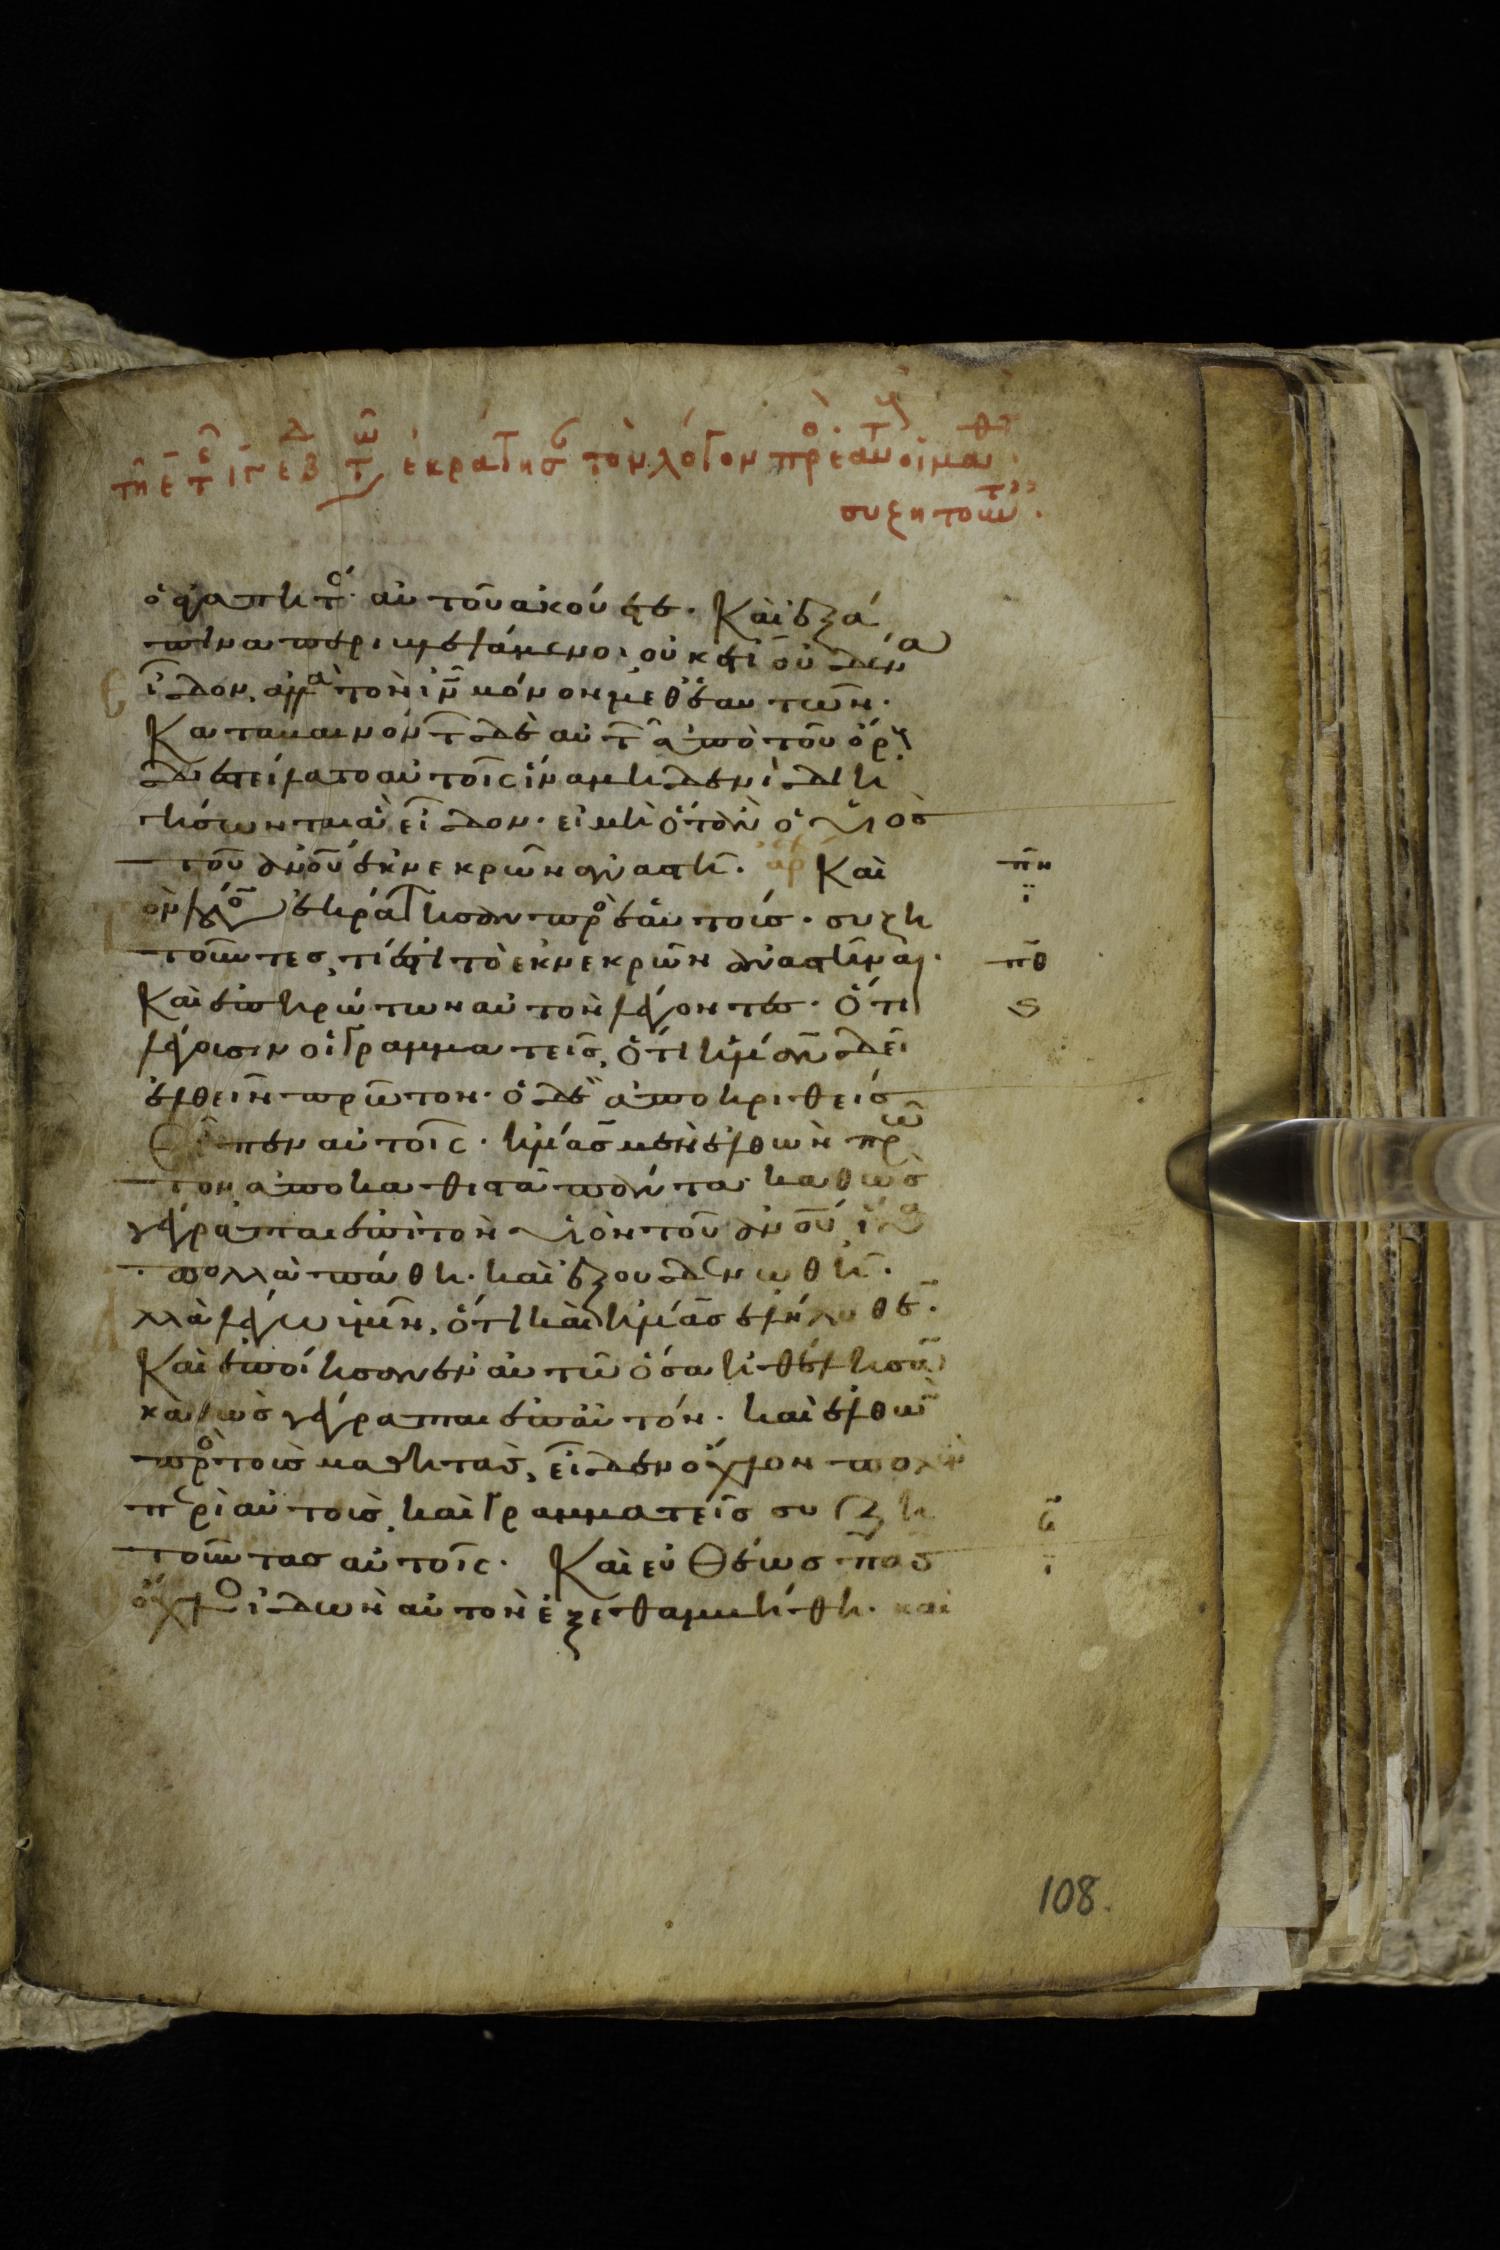 ἐκράτησ τὸν λόγον πρ
συζητοῦν
ὁ ἀγαπητὸ αὐτοῦ ἀκούετε. Καὶ ἐξά
πινα περιβλεψάμενοι οὐκέτι οὐδένα
ἶδον, ἀλλὰ τὸν ἰν̄ μόνον μεθ ἑαυτῶν.
Καταβαινόντ δὲ αὐτ ἀπὸ τοῦ ὄρ
διεστείλατο αὐτοῖς ἵνα μηδενὶ διη
γήσωνται ἃ εἶδον. εἰ μὴ ὅταν ὁ υἱὸσ
τοῦ ἀνου ἐκ νεκρῶν ἀναστῆ. Καὶ
πη
ϊ
τὸν λόγο ἐκράτησαν πρὸ ἑαυτούσ. συζη
τοῦντεσ, τί ἐστι τὸ ἐκ νεκρῶν ἀναστῆναι.
πθ
Καὶ ἐπηρώτων αὐτὸν λέγοντεσ. Ὅτι
ϛ
λέγουσιν οἱ γραμματεῖσ, ὅτι ἠλίαν δεῖ
ἐλθεῖν πρῶτον. ὁ δὲ ἀποκριθεὶσ
Εἶπεν αὐτοῖς. ἠλίασ μὲν ἐλθὼν πρῶ
τον, ἀποκαθιστᾶ πάντα. καθὼσ
γέγραπται ἐπὶ τὸν υἱὸν τοῦ ἀνου ἵνα
πολλὰ πάθη. καὶ ἐξουδενωθῆ.
λλὰ λέγω ὑμῖν, ὅτι καὶ ἠλίασ ἐλήλυθε.
Καὶ ἐποίησαν ἐν αὐτῶ ὅσα ἠθέλησαν
καθὼσ γέγραπται ἐπ αὐτόν. καὶ ἐλθὼν
πρὸ τοὺσ μαθητὰσ, εἶδεν ὄχλον πολὺν
περὶ αὐτοὺσ, καὶ γραμματεῖσ συζη
ϟ
τοῦντασ αὐτοῖς. Καὶ εὐθέωσ πᾶσ
ϊ
ὄχλο ἰδὼν αὐτὸν ἐξεθαμβήθη. καὶ
108.